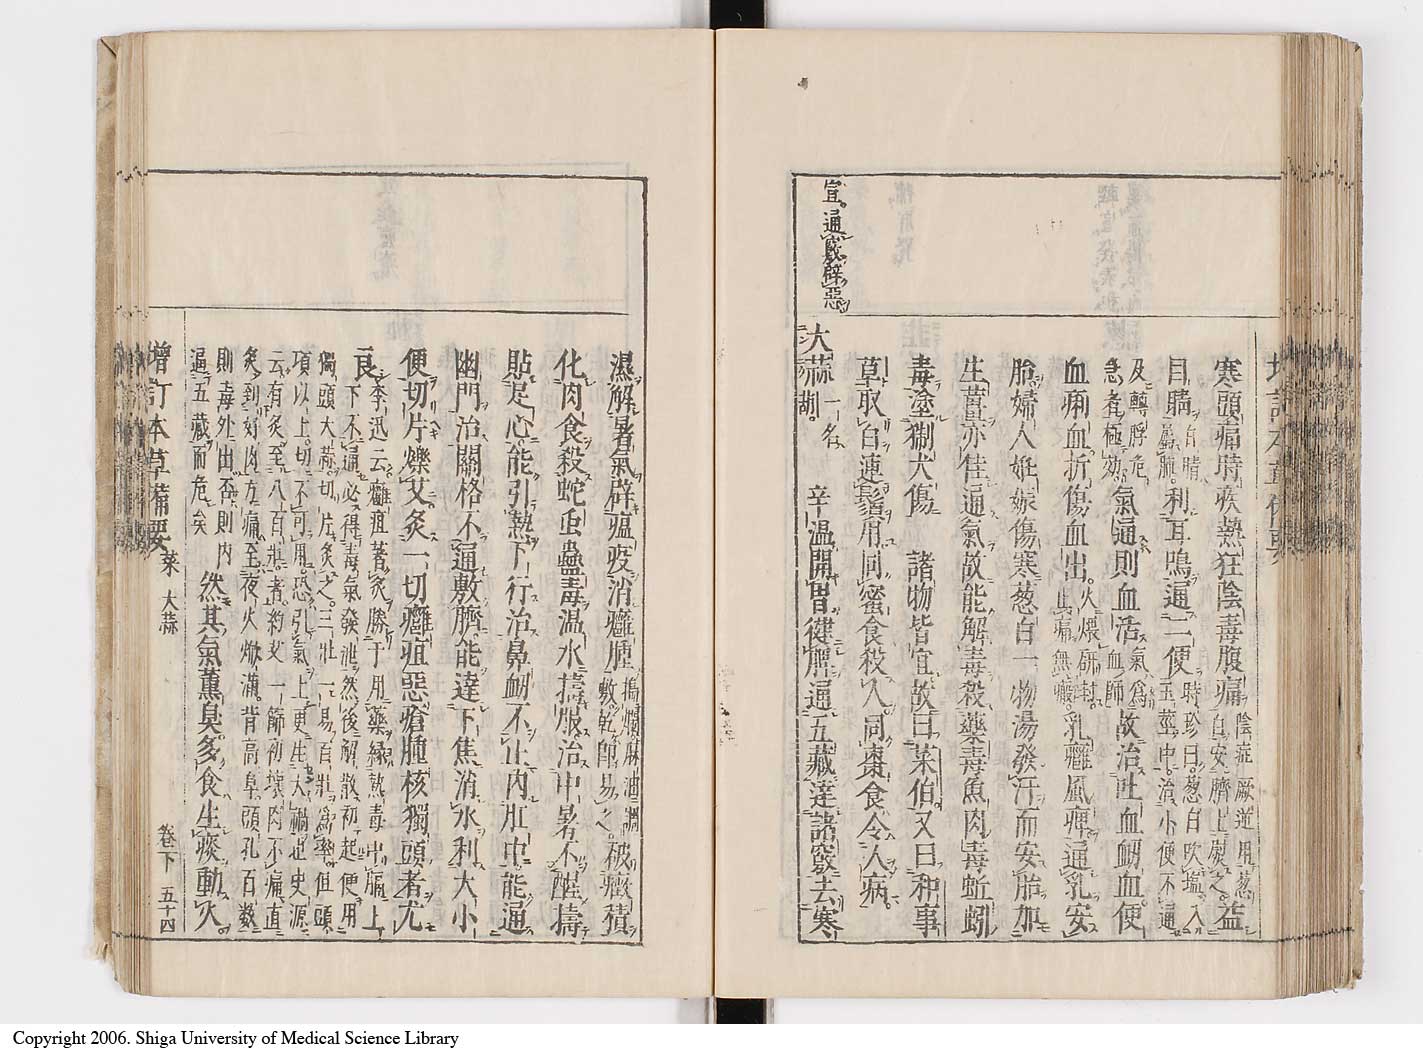 寒頭痛時疾熱狂陰毒腹痛陰症厥逆用葱白安臍上熨之益
目睛白睛屬肺利耳鳴通二便時珍曰葱白吹塩入玉莖中治小便不通
及轉脬危急者極効氣通則血活氣爲血師故治吐血衄血便
血痢血折傷血出火煨研封止痛無瘢乳癰風痺通乳安
胎婦人妊娠傷寒葱白一物湯發汗而安胎加
生薑亦佳通氣故能解毒殺藥毒魚肉毒蚯蚓
毒塗猘犬傷 諸物皆宜故曰菜伯又曰和事
草取白連鬚用同蜜食殺人同棗食令人病
宣通竅辟惡
大蒜一名葫 辛温開胃健脾通五藏達諸竅去寒
濕解暑氣辟瘟疫消癰腫搗爛麻油調敷乾即易之破癥積
化肉食殺蛇虫蠱毒温水擣服治中暑不醒擣
貼足心能引熱下行治鼻衄不止内肛中能通
幽門治關格不通敷臍能達下焦消水利大小
便切片爍艾灸一切癰疽惡瘡腫核獨頭者尤
良李迅云癰疽著灸勝于用藥緣熱毒中膈上
下不通必得毒氣發泄然後解散初起便用
獨頭大蒜切片灸之三壯一易百壯爲率但頭
項以上切不可用恐引氣上更生大禍也史源
云有灸至八百壯者約艾一篩初壞肉不痛直
灸到好肉方痛至夜火焮滿背高阜頭孔百数
則毒外出否則内
逼五藏而危矣然其氣薰臭多食生痰動火
增訂本草備要 菜 大蒜 卷下 五十四